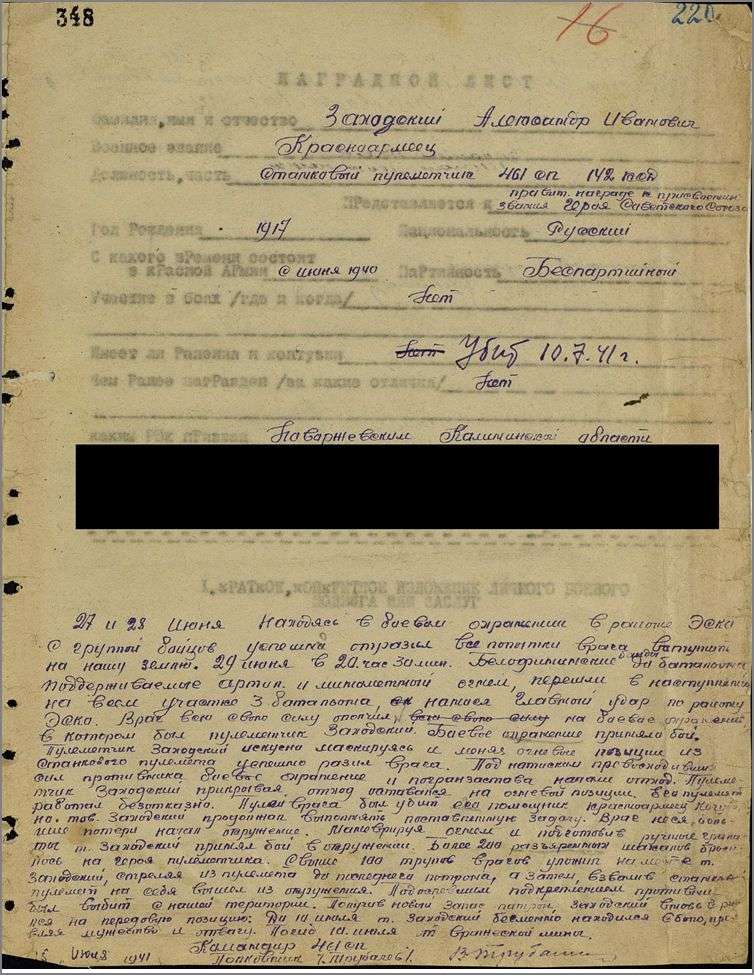 348
16
220
НАГРАДНОЙ ЛИСТ
Фамилия, имя и отчество Заходский Александр Иванович
Военное звание Красноармеец
Должность, часть Станковый пулеметчик 461 сп 142 ксд
правит. награде к присвоении
Представляется к звания Героя Советского Союза
Год Рождения 1917 Национальность Русский
С какого времени состоит
в Красной Армии с июня 1940 Партийность Беспартийный
Участие в боях /где и когда/ Нет
Имеет ли Ранения и контузии Убит 10.7.41 г.
Чем Ранее награжден /за какие отличия/ Нет
каким РВК призван Новоржевским Калининской области
1. КРАТКОЕ, КОНКРЕТНОЕ ИЗЛОЖЕНИЕ ЛИЧНОГО БОЕВОГО
ПОДВИГА ИЛИ ЗАСЛУГ
27 и 28 июня находясь в боевом охранении в районе Эско
с группой бойцов успешно отразил все попытки врага вступить
на нашу землю. 29 июня в 20 час 30 мин. Белофинские до батальона
поддерживаемые артил. и минометным огнем, перешли в наступление
на всем участке 3 батальона, нанося главный удар по району
Эско. Враг всю свою силу обрушил на боевое охранение,
в котором был пулеметчик Заходский. Боевое охранение приняло бой.
Пулеметчик Заходский искусно маскируясь и меняя огневые позиции из
станкового пулемета успешно разил врага. Под натиском превосходивших
сил противника боевое охранение и погранзастава начали отход. Пулеме-
тчик Заходский прикрывая отход остался на огневой позиции. Его пулемет
работал безотказно. Пулей врага был убит его помощник красноармеец
но. тов. Заходский продолжал выполнять поставленную задачу. Враг неся боль-
шие потери начал окружение. Маневрируя огнем и подготовив ручные грана-
ты т. Заходский принял бой в окружении. Более 200 разъяренных шакалов броси-
лось на героя пулеметчика. Свыше 100 трупов врагов уложил на месте т.
Заходский, стреляя из пулемета до последнего патрона, а затем, взвалив станковый
пулемет на себя вышел из окружения. Подоспевшим подкреплением противник
был выбит с нашей территории. Получив новый запас патрон, Заходский вновь
на передовую позицию. До 10 июля т. Заходский бессменно находился в бою, про-
являя мужество и отвагу. Погиб 10. июля от вражеской мины.
Командир 461 сп
июля 1941 Полковник /Трубачев/.